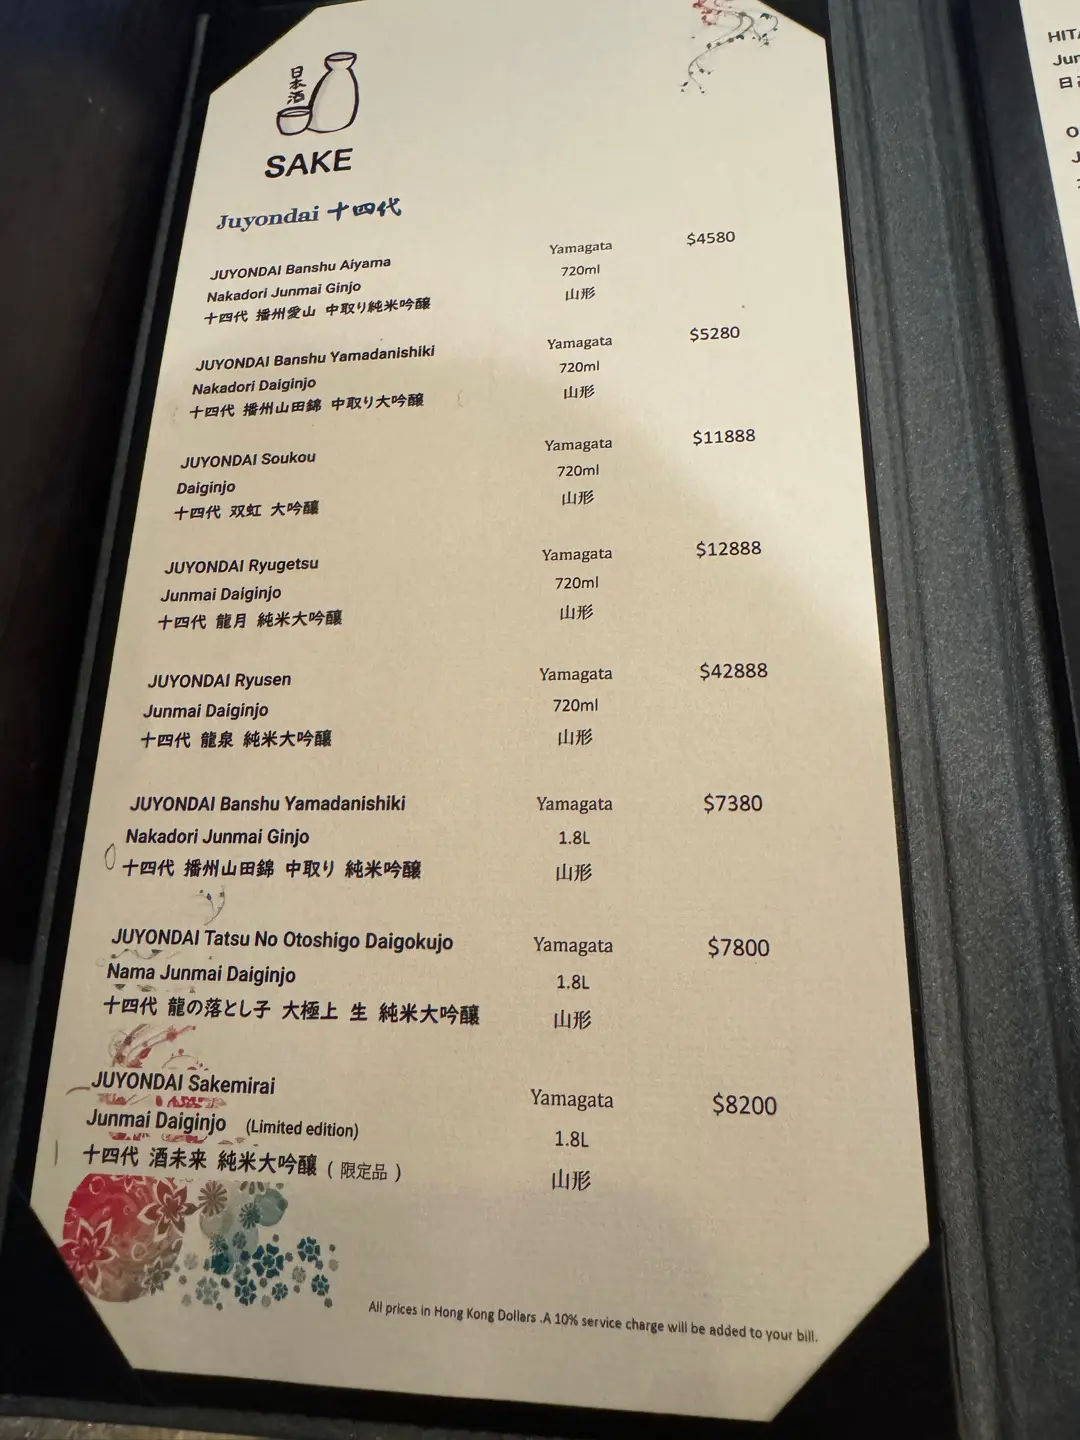 日本酒
SAKE
Juyondai 十四代
JUYONDAI Banshu Aiyama Yamagata $4580
Nakadori Junmai Ginjo 720ml
十四代 播州愛山 中取り純米吟醸 山形
JUYONDAI Banshu Yamadanishiki Yamagata $5280
Nakadori Daiginjo 720ml
十四代 播州山田錦 中取り大吟醸 山形
JUYONDAI Soukou Yamagata $11888
Daiginjo 720ml
十四代 双虹 大吟醸 山形
JUYONDAI Ryugetsu Yamagata $12888
Junmai Daiginjo 720ml
十四代 龍月 純米大吟醸 山形
JUYONDAI Ryusen Yamagata $42888
Junmai Daiginjo 720ml
十四代 龍泉 純米大吟醸 山形
JUYONDAI Banshu Yamadanishiki Yamagata $7380
Nakadori Junmai Ginjo 1.8L
十四代 播州山田錦 中取り 純米吟醸 山形
JUYONDAI Tatsu No Otoshigo Daigokujo Yamagata $7800
Nama Junmai Daiginjo 1.8L
十四代 龍の落とし子 大極上 生 純米大吟醸 山形
JUYONDAI Sakemirai Yamagata $8200
Junmai Daiginjo (Limited edition) 1.8L
十四代 酒未来 純米大吟醸 ( 限定品 ) 山形
All prices in Hong Kong Dollars .A 10% service charge will be added to your bill.